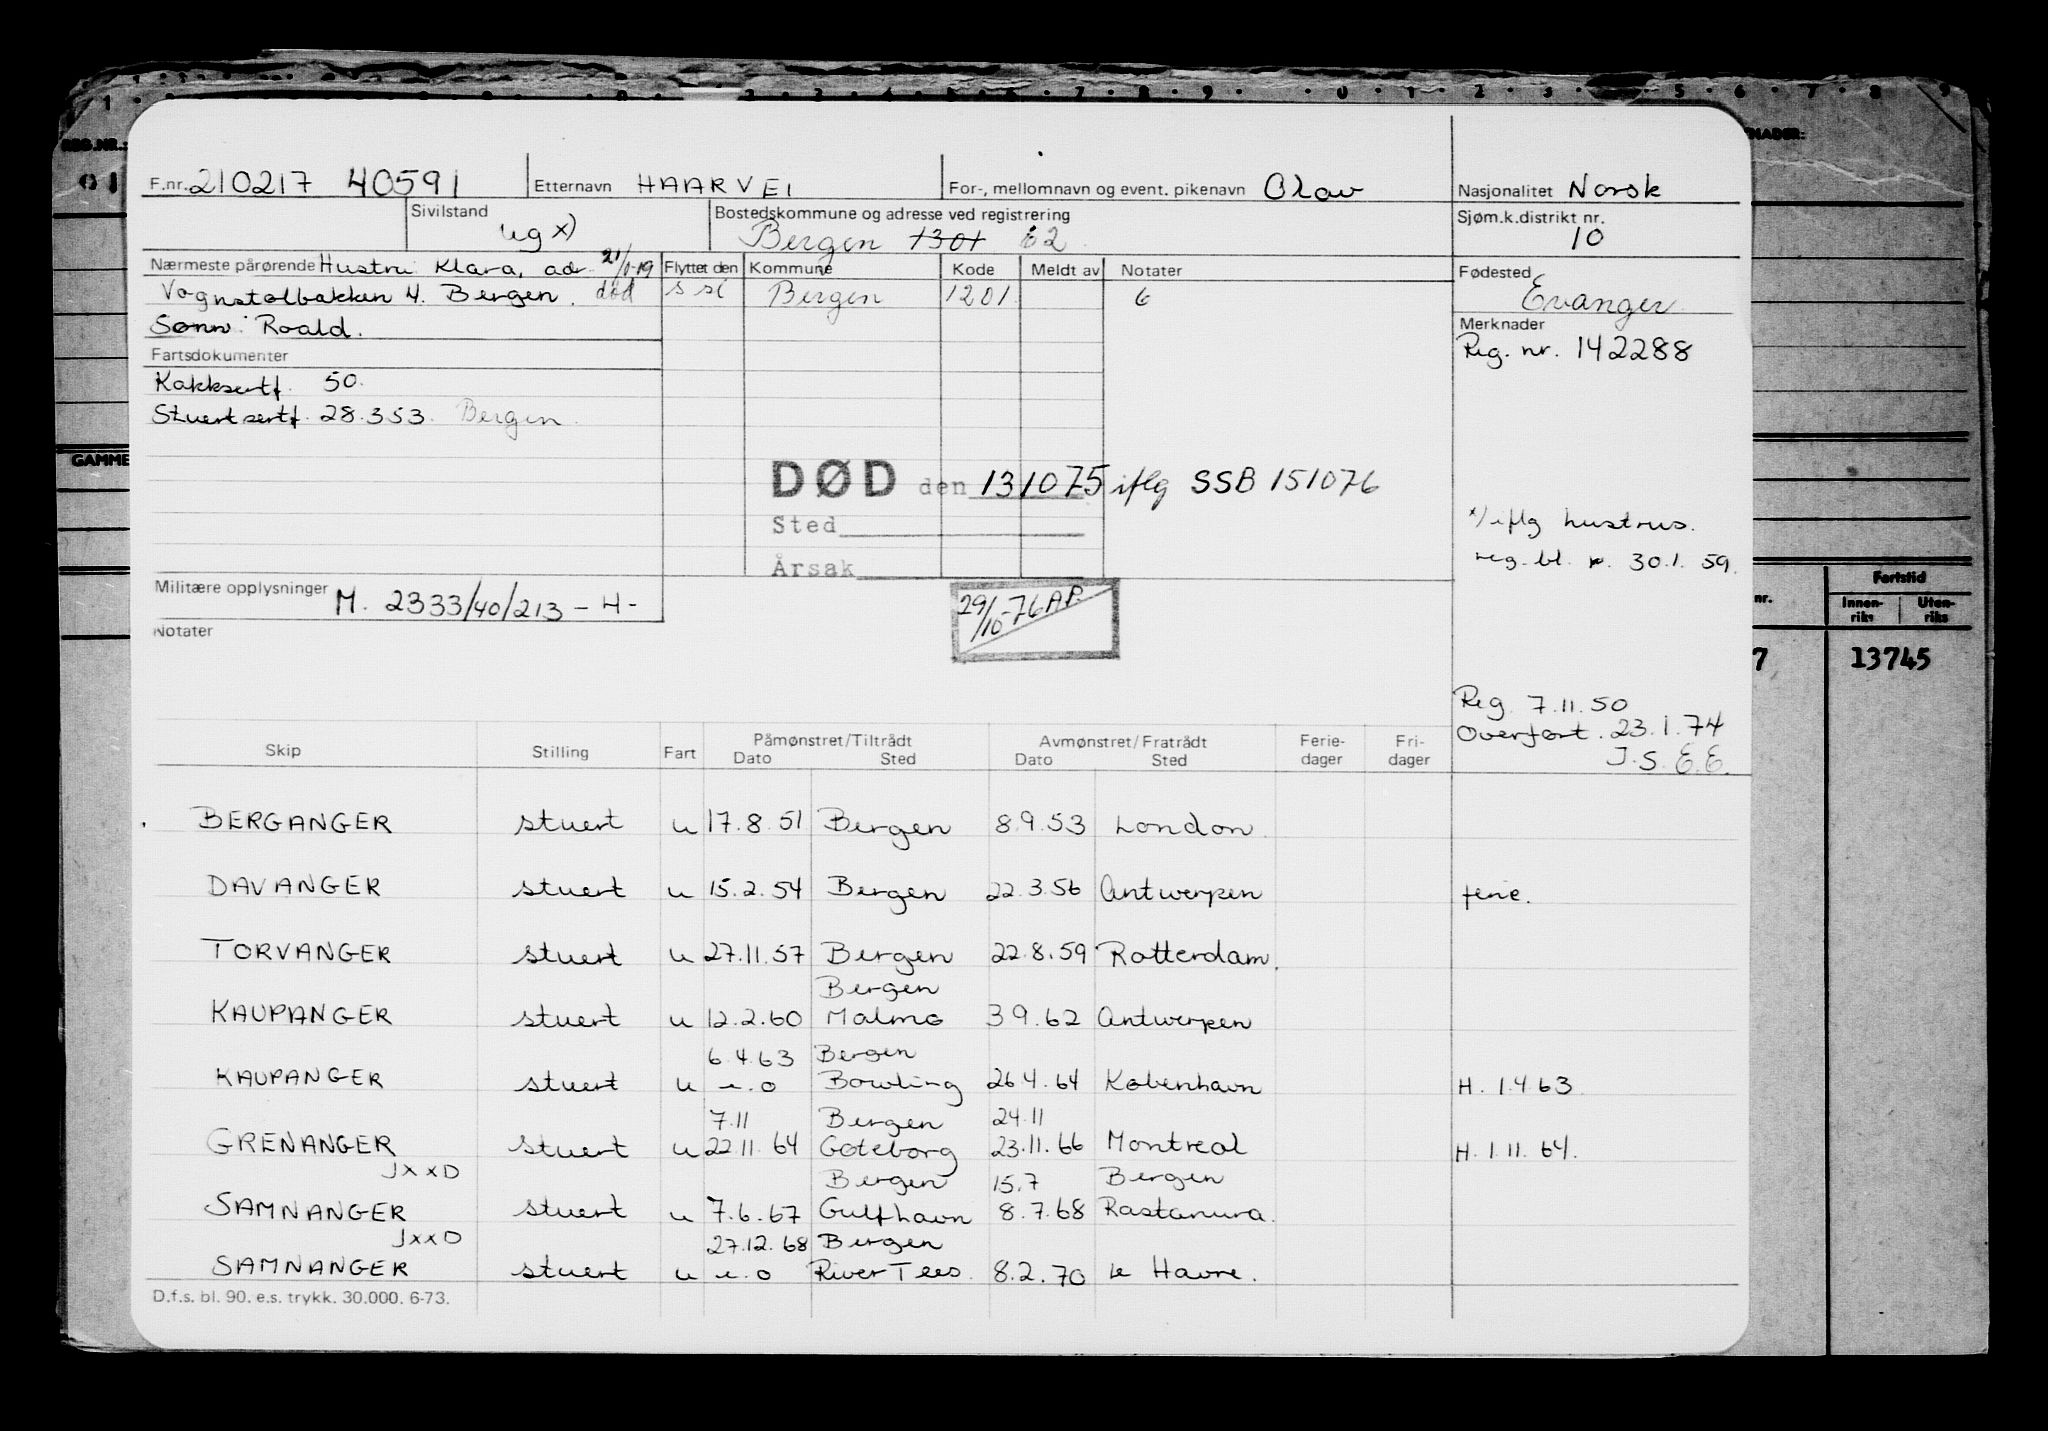 REG.NR.:
F.nr. 210217 40591 Etternavn HAARVEI For-, mellomnavn og event. pikenavn Olav Nasjonalitet Norsk
Sivilstand ug x) Bostedskommune og adresse ved registrering Bergen 1301 Sjøm.k.distrikt nr. 10
Nærmeste pårørende Hustru Klara, adr. Flyttet den Kommune Kode Meldt av Notater Fødested Evanger
Vognstølbakken 4. Bergen. død Bergen 1201 6
Sønn: Roald.
Merknader
Reg. nr. 142288
Fartsdokumenter
Kokksertf. 50.
Stuertsertf. 28.353. Bergen.
GAMME
DØD den 131075 iflg SSB 151076
Sted
Årsak
x) iflg hustrus.
reg. bl. 30.1.59.
Militære opplysninger M. 2333/40/213 - H -
29/10-76 AP.
Notater
Fartstid
Innen-riks Uten-riks
nr.
7 13745
Reg. 7.11.50
Overført. 23.1.74
J.S. E.E.
Skip Stilling Fart Påmønstret/Tiltrådt Avmønstret/Fratrådt Ferie-dager Fri-dager
Dato Sted Dato Sted
BERGANGER stuert u 17.8.51 Bergen 8.9.53 London.
DAVANGER stuert u 15.2.54 Bergen 22.3.56 Antwerpen ferie.
TORVANGER stuert u 27.11.57 Bergen 22.8.59 Rotterdam.
Bergen
KAUPANGER stuert u 12.2.60 Malmø 3.9.62 Antwerpen
6.4.63 Bergen
KAUPANGER stuert u u.o Bowling 26.4.64 København H. 1.4.63.
7.11 Bergen 24.11
GRENANGER stuert u 22.11.64 Gøteborg 23.11.66 Montreal H. 1.11.64.
JXXD Bergen 15.7 Bergen
SAMNANGER stuert u 7.6.67 Gulfhavn 8.7.68 Rastanura.
JxxD 27.12.68 Bergen
SAMNANGER stuert u u.o River Tees. 8.2.70 le Havre.
D.f.s. bl. 90. e.s. trykk. 30.000. 6-73.